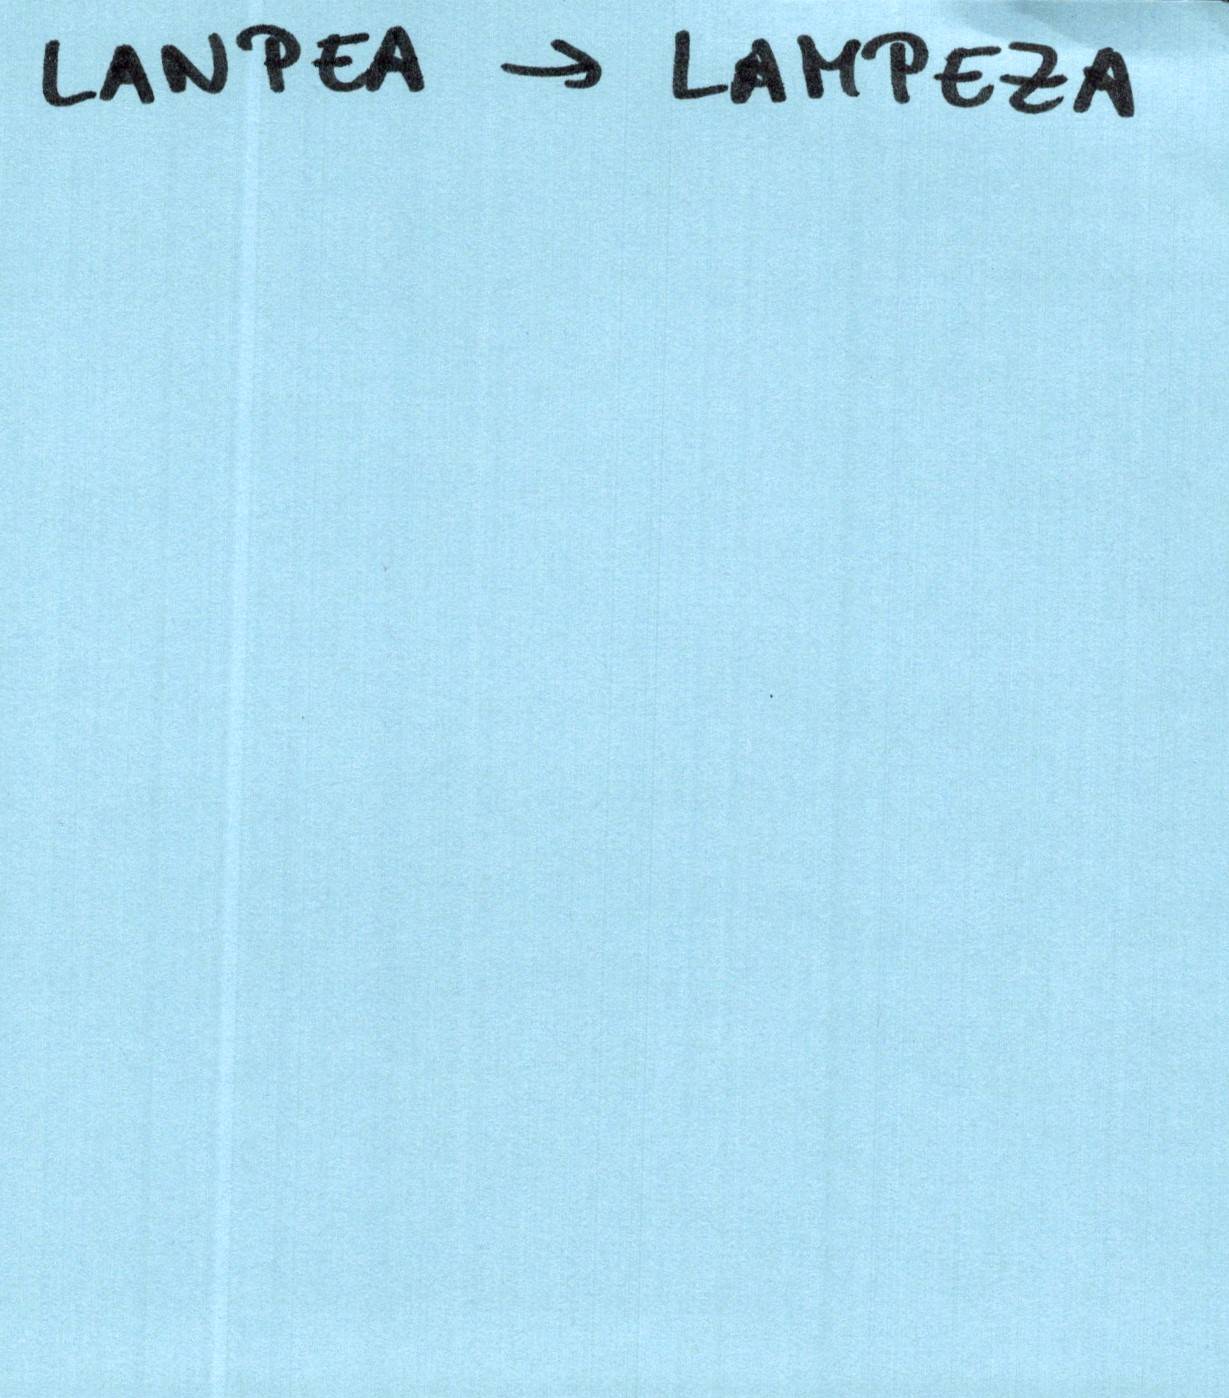 LANPEA → LAMPEZA